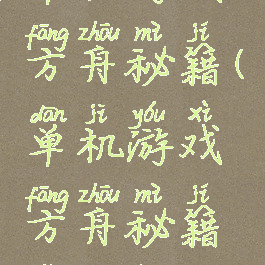 fāng zhōu mì jí
方舟秘籍(
dān jī yóu xì
单机游戏
fāng zhōu mì jí
方舟秘籍